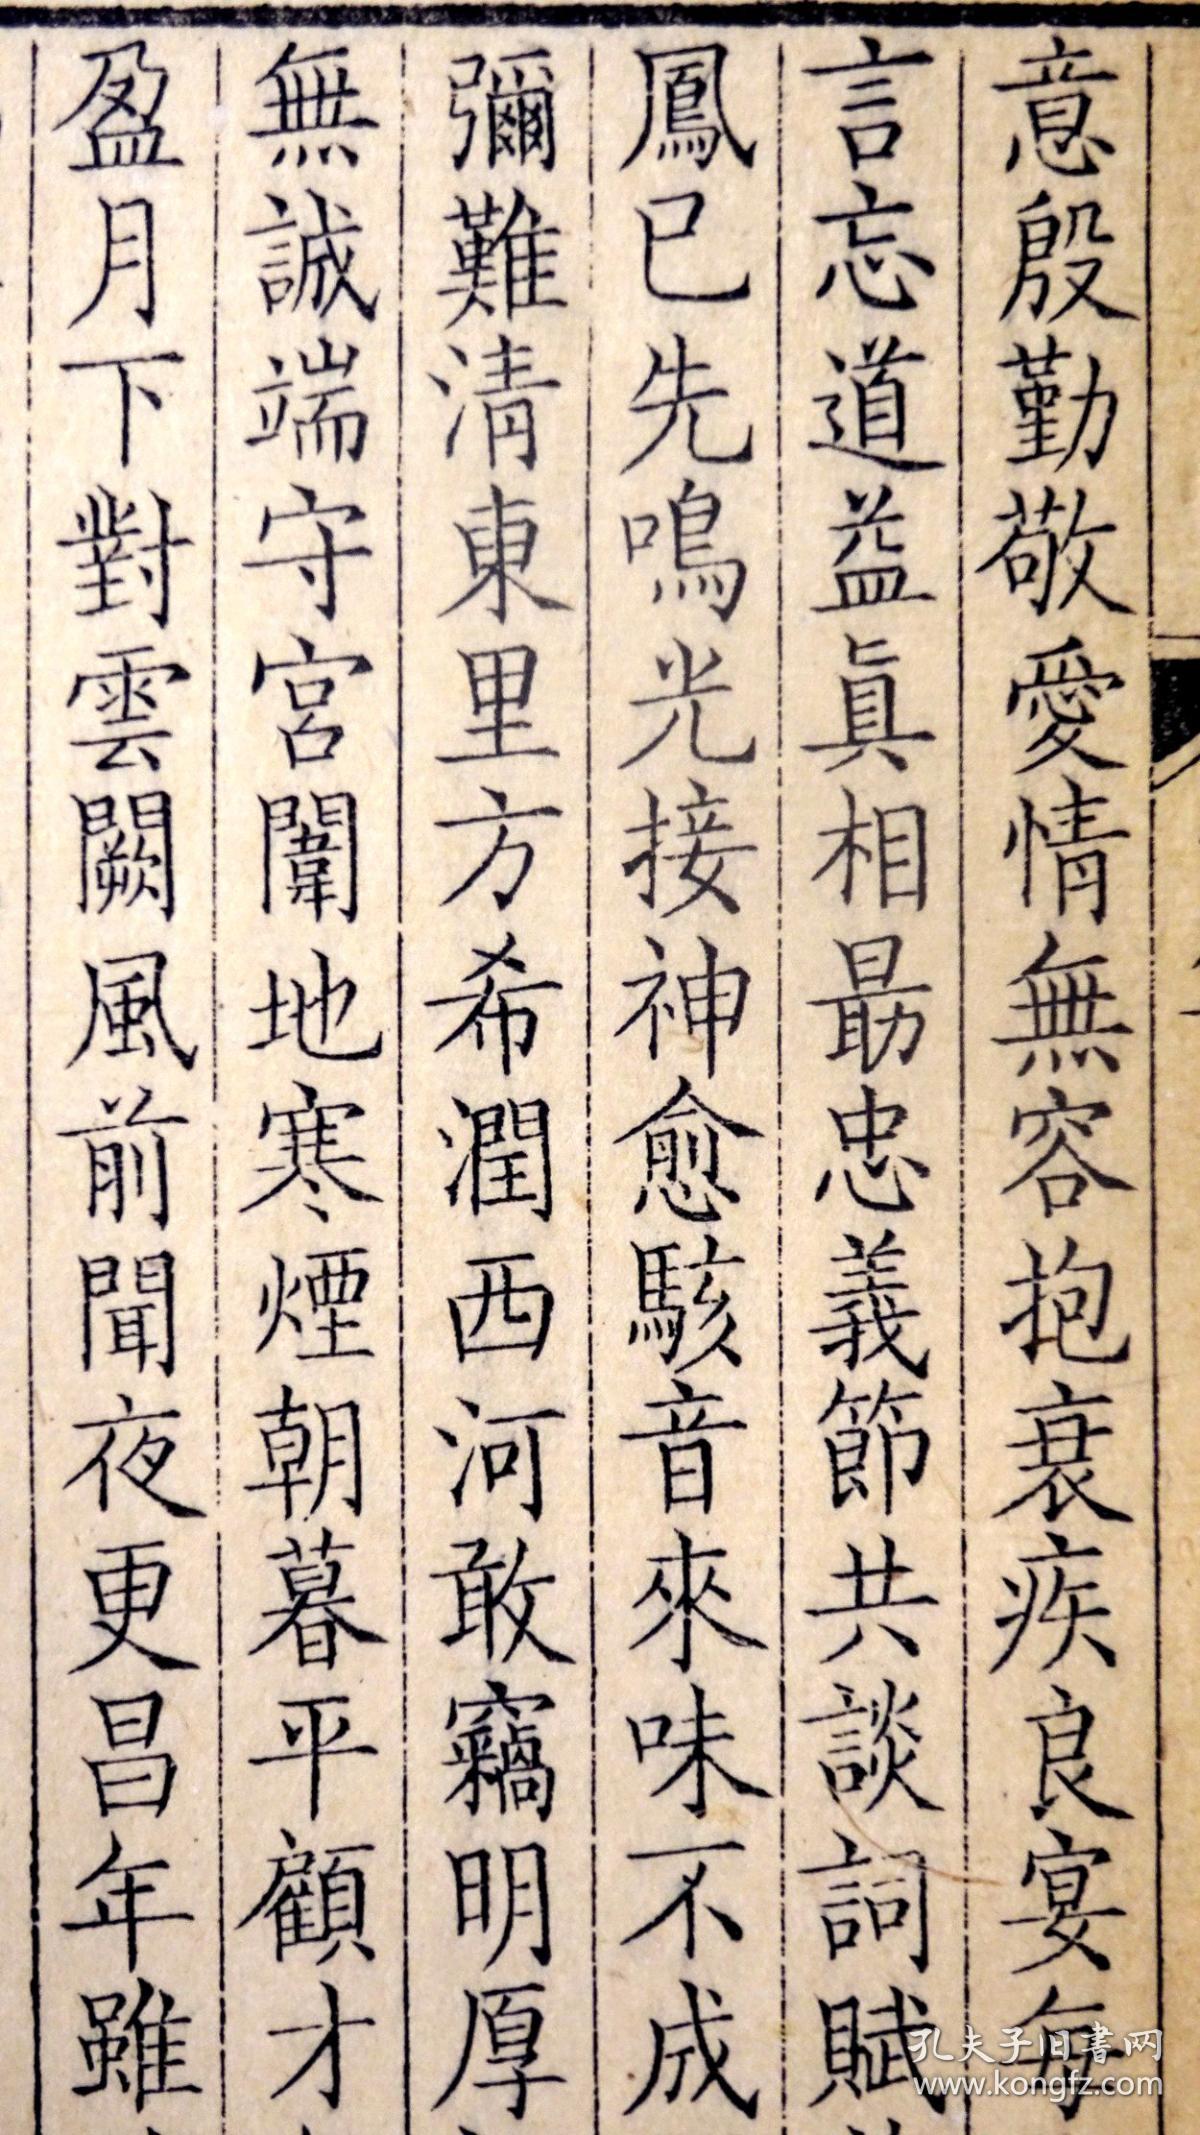 意殷勤敬愛情無容抱衰疾良宴每
言忘道益眞相勗忠義節共談詞賦
鳳已先鳴光接神愈駭音來味不成
彌難淸東里方希潤西河敢竊明厚
無誠端守宮闈地寒煙朝暮平顧才
盈月下對雲闕風前聞夜更昌年雖
孔夫子旧書网
www.kongfz.com